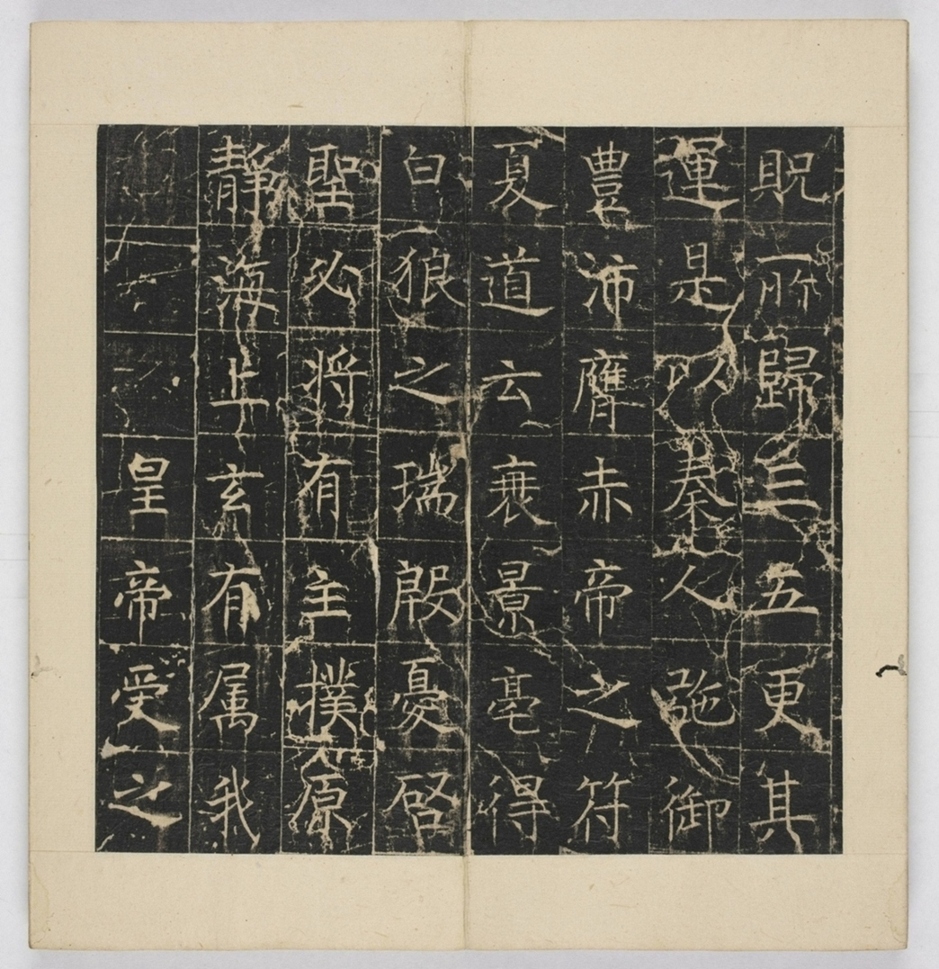 貺所歸三五更其
運是以秦人弛御
豊沛膺赤帝之符
夏道云衰景亳得
白狼之瑞殷憂啓
聖必将有主撲原
靜海上玄有属我
皇帝受之